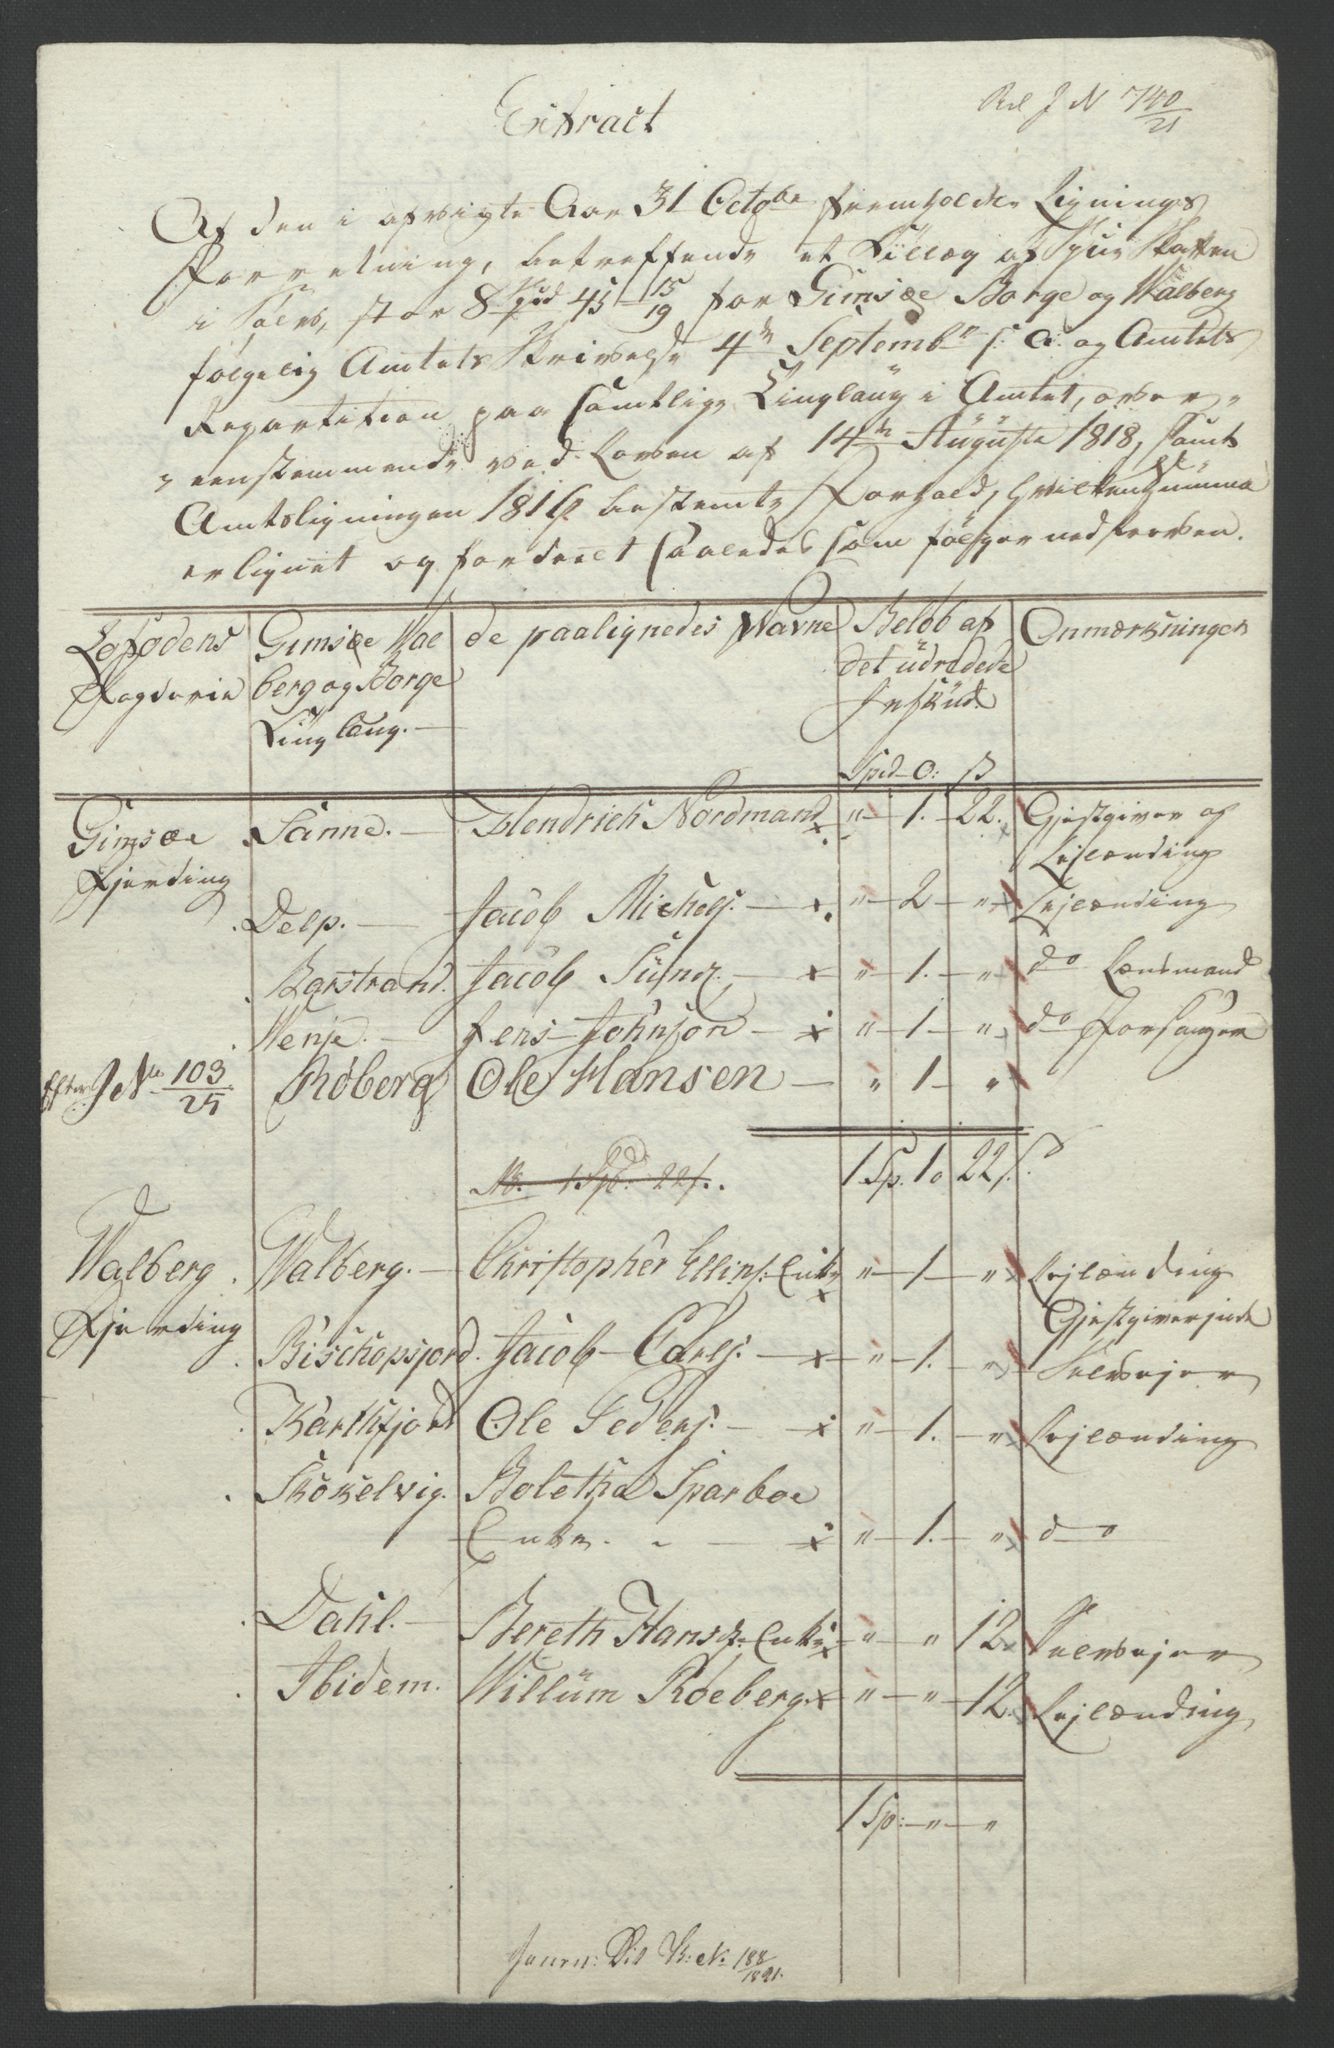 Extract
Rel J N 740/21
Af den i afvigte Aar 31 Octobr fremholdte Lignings
Forretning, betreffende et Tillæg af Spur Skatten
i Sölv, stor 8 Spd 45 15/19 for Gimsöe Borge og Walberg
følgelig Amtets Skrivelse 4de Septembr s: a: og Amtets
Repartition paa samtlige Tinglaug i Amtet, over-
eenstemmende ved Loven af 14de Augusti 1818, samt
Amtsligningen 1816 bestemte Forhold, hvilken Summa
er lignet og fordeelt saaledes som følger nedskreven.
Lofodens Fogderie | Gimsöe Walberg og Borge Tinglaug. | de paalignedes Navne | Beløb af det udredede Indskud. Spd O: ß | Anmærkninger
Gimsöe Fjerding | Sanne. | Hendrich Nordmand | " 1. 22. | Gjestgiver og Lejlænding
Delp. | Jacob Michels. | " 2 " | Lejlænding
Barstrand. | Jacob Sund. | " 1. " | do Lænsmand
Wenje. | Jens Johnson | " 1 " | do Forsanger
Efter J No 103/25 | Röberg | Ole Hansen | " 1 "
No. 1 Spd: 22 s. | 1 Sp. 1 o 22 s.
Walberg Fjerding | Walberg. | Christopher Ellins: Enke | " 1 " | Lejlænding Gjestgiverinde
Bischopsjord. | Jacob Carls. | " 1. " | Selvejer
Kartfjord | Ole Peders. | " 1. " | Lejlænding
Skökelvig. | Boletha Sparboe
Enke. | " 1. " | do
Dahl. | Bereth Hansd. Enke | " " 12 | Selvejer
Ibidem. | Willum Röeberg. | " " 12. | Lejlænding
1 Sp: " "
Journ: 188/1821.